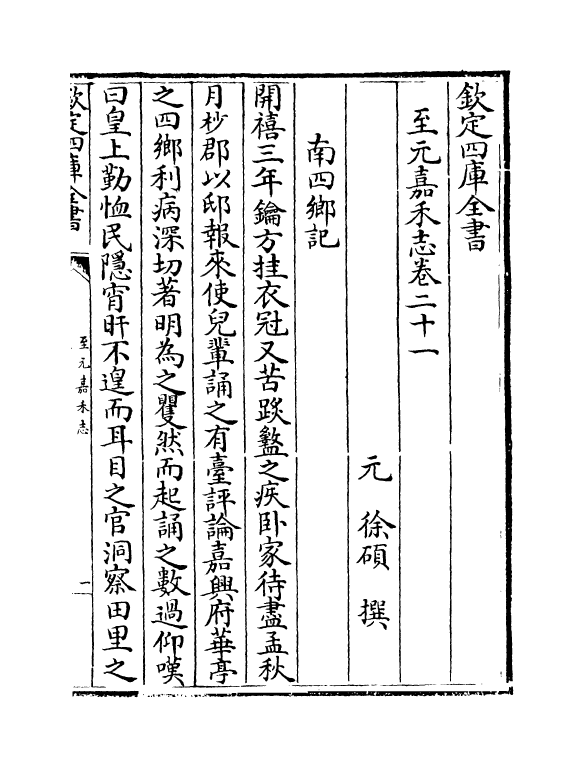 欽定四庫全書
至元嘉禾志卷二十一
元 徐碩 撰
南四鄉記
開禧三年鑰方挂衣冠又苦踐盭之疾卧家待盡孟秋
月杪郡以邸報來使兒輩誦之有臺評論嘉興府華亭
之四鄉利病深切著明為之矍然而起誦之數過仰嘆
曰皇上勤恤民隱宵旰不遑而耳目之官洞察田里之
欽定四庫全書
至元嘉禾志
一